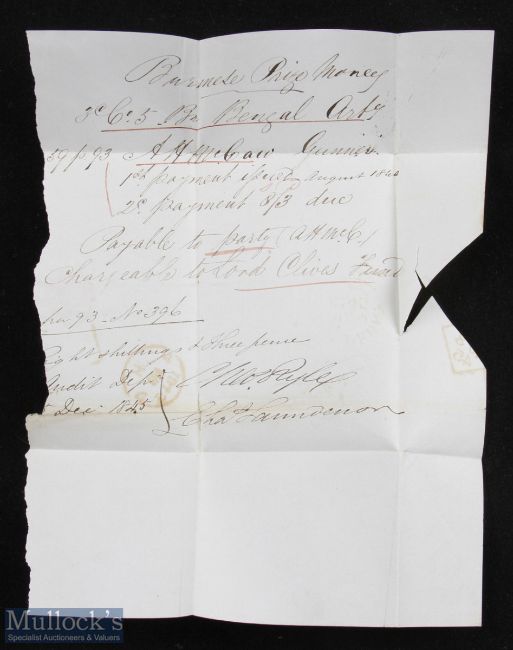 Burmese Prize Money
3d Co. 5 Bn Bengal Arty
59 p 93 A H McCaw Gunner
1st payment issued August 1840
2d payment 8/3 due
Payable to party (A H McC.)
Chargeable to Lord Clives Fund
93 - No 396
Eight shillings & threepence
Audit Depr
Dec 1845
Chas Saunderson
MULLOCK'S
Specialist Auctioneers & Valuers